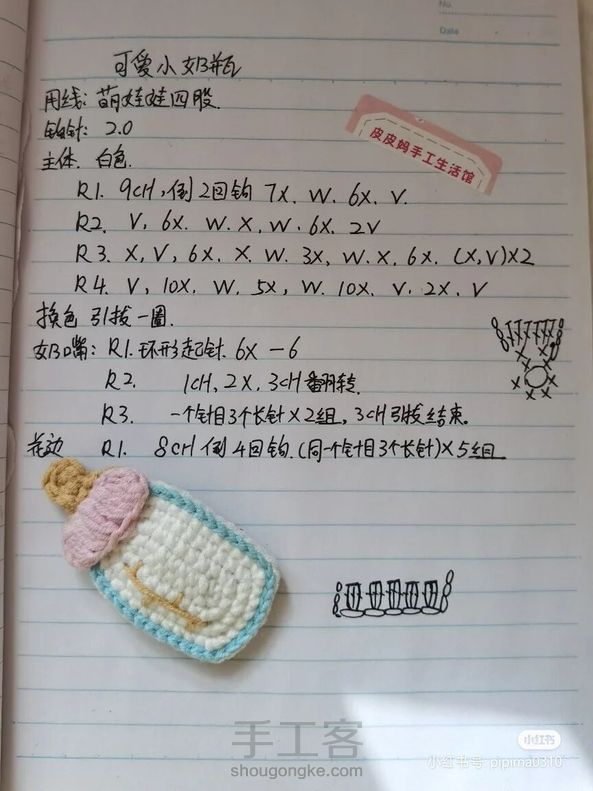 No.
Date
可爱小奶瓶
用线: 萌娃娃四股.
钩针: 2.0
皮皮妈手工生活馆
主体. 白色.
R1. 9CH,倒2回钩 7X. W. 6X. V.
R2. V, 6X. W. X, W. 6X. 2V
R3. X, V, 6X. X. W. 3X, W. X. 6X. (X,V)X2
R4. V, 10X. W. 5X, W. 10X. V. 2X. V
换色 引拔一圈.
奶嘴: R1.环形起针. 6X —6
R2. 1CH, 2X, 3CH翻转.
R3. 一个针目3个长针X2组, 3CH引拔结束。
花边 R1. 8CH 倒4回钩.(同一个针目3个长针)X5组
手工客
shougongke.com
小红书
小红书号 pipima0310